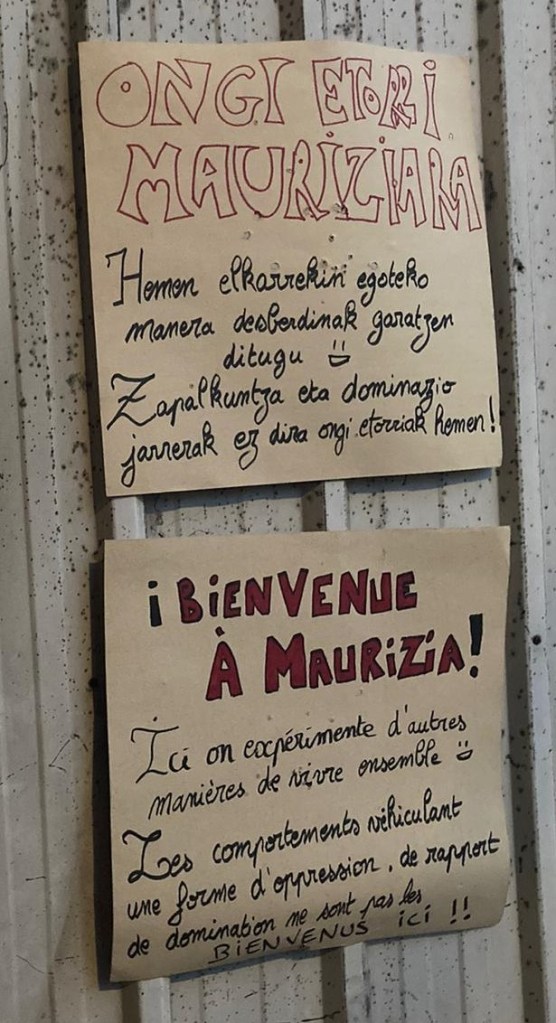 ONGI ETORRI
MAURIZIARA
Hemen elkarrekin egoteko
manera desberdinak garatzen
ditugu
Zapalkuntza eta dominazio
jarrerak ez dira ongi etorriak hemen!
¡BIENVENUE
À MAURIZIA!
Ici on expérimente d'autres
manières de vivre ensemble
Les comportements véhiculant
une forme d'oppression, de rapport
de domination ne sont pas les
BIENVENUS ICI !!